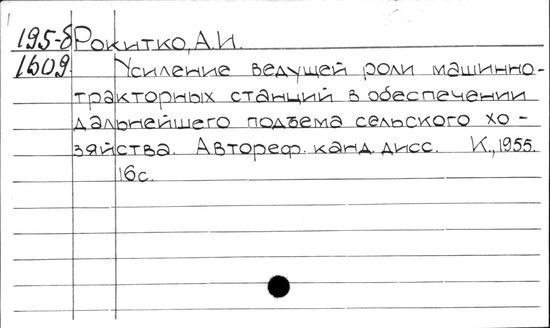 195-б Рокитко, А.И.
1609. Усиление ведущей роли машинно-
тракторных станций в обеспечении
дальнейшего подъема сельского хо-
зяйства. Автореф. канд. дисс. К., 1955.
16с.